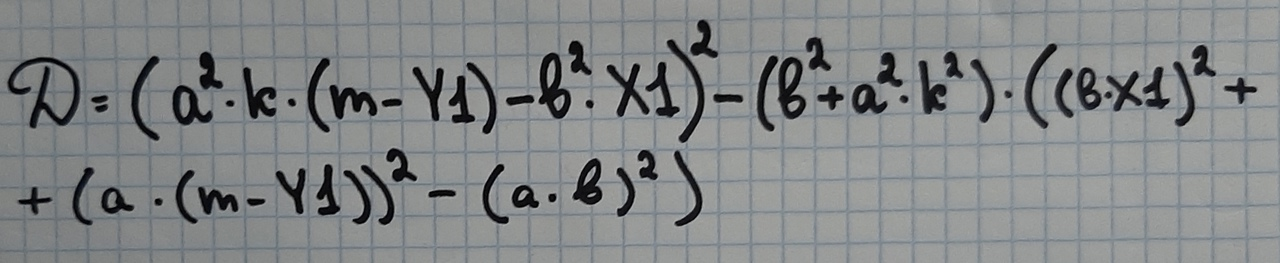 D=(a²·k·(m-Y1)-b²·X1)²-(b²+a²·k²)·((b·X1)²+
+(a·(m-Y1))²-(a·b)²)